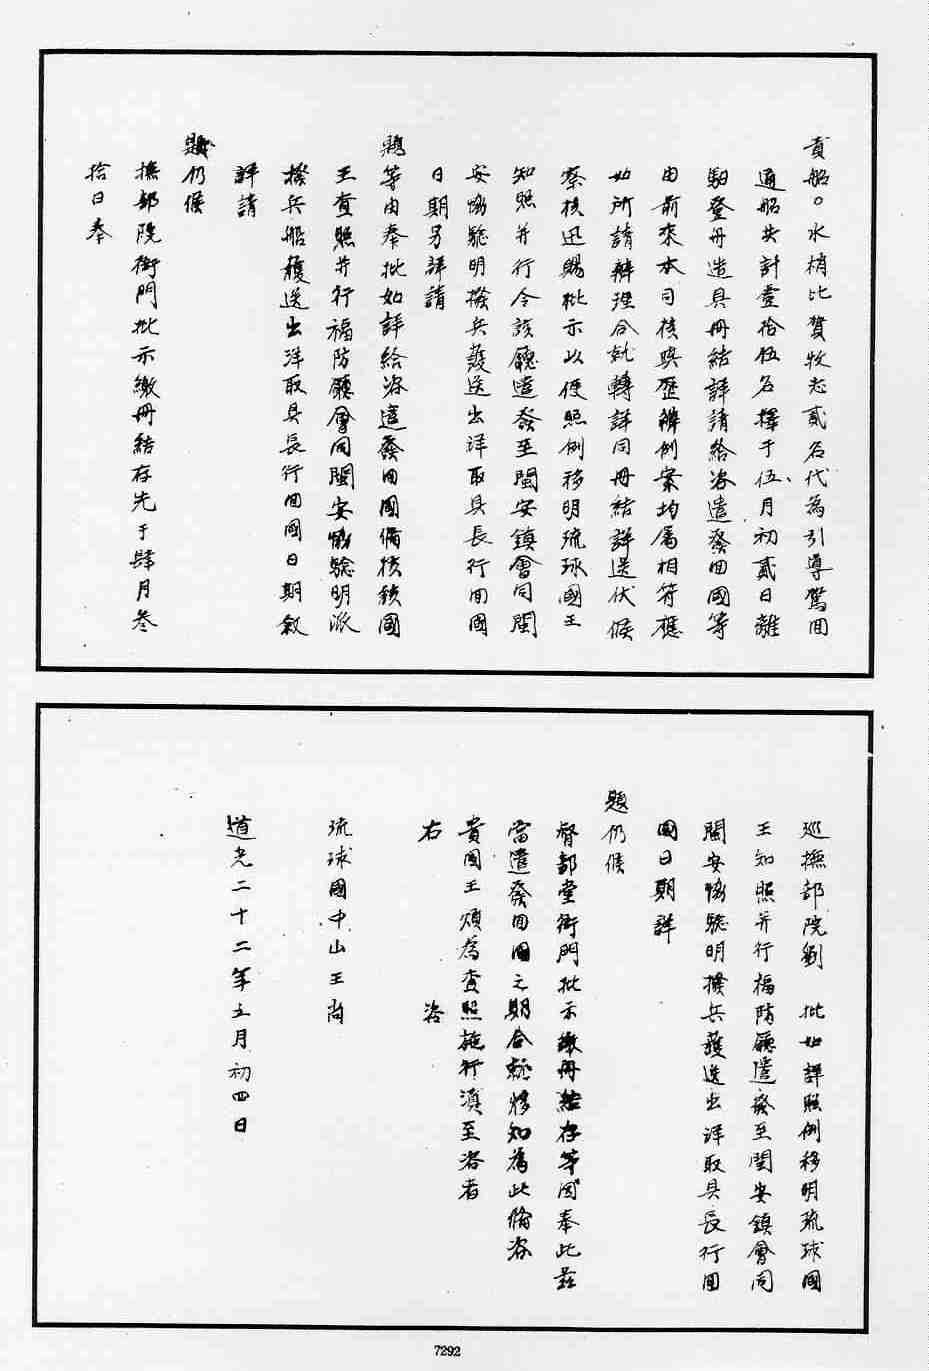 貢船。水梢比賀牧志貳名代為引導駕回
通船共計壹拾伍名擇于伍月初貳日離
馹登舟造具冊結詳請給咨遣發回國等
由前來本司核與歷辦例案均屬相符應
如所請辦理合就轉詳同冊結詳送伏候
察核迅賜批示以便照例移明琉球國王
知照并行令該廳遣發至閩安鎮會同閩
安協驗明撥兵護送出洋取具長行回國
日期另詳請
題等由奉批如詳給咨遣發回國備核鎮國
王查照并行福防廳會同閩安協驗明派
撥兵船護送出洋取具長行回國日期敘
詳請
題仍候
撫部院衙門批示繳冊結存先于肆月叁
拾日奉
巡撫部院劉　批如詳照例移明琉球國
王知照并行福防廳遣發至閩安鎮會同
閩安協驗明撥兵護送出洋取具長行回
國日期詳
題仍候
督部堂衙門批示繳冊結存等因奉此茲
當遣發回國之期合就移知為此備咨
貴國王煩為查照施行須至咨者
右　　　咨
琉球國中山王尚
道光二十二年五月初四日
7292